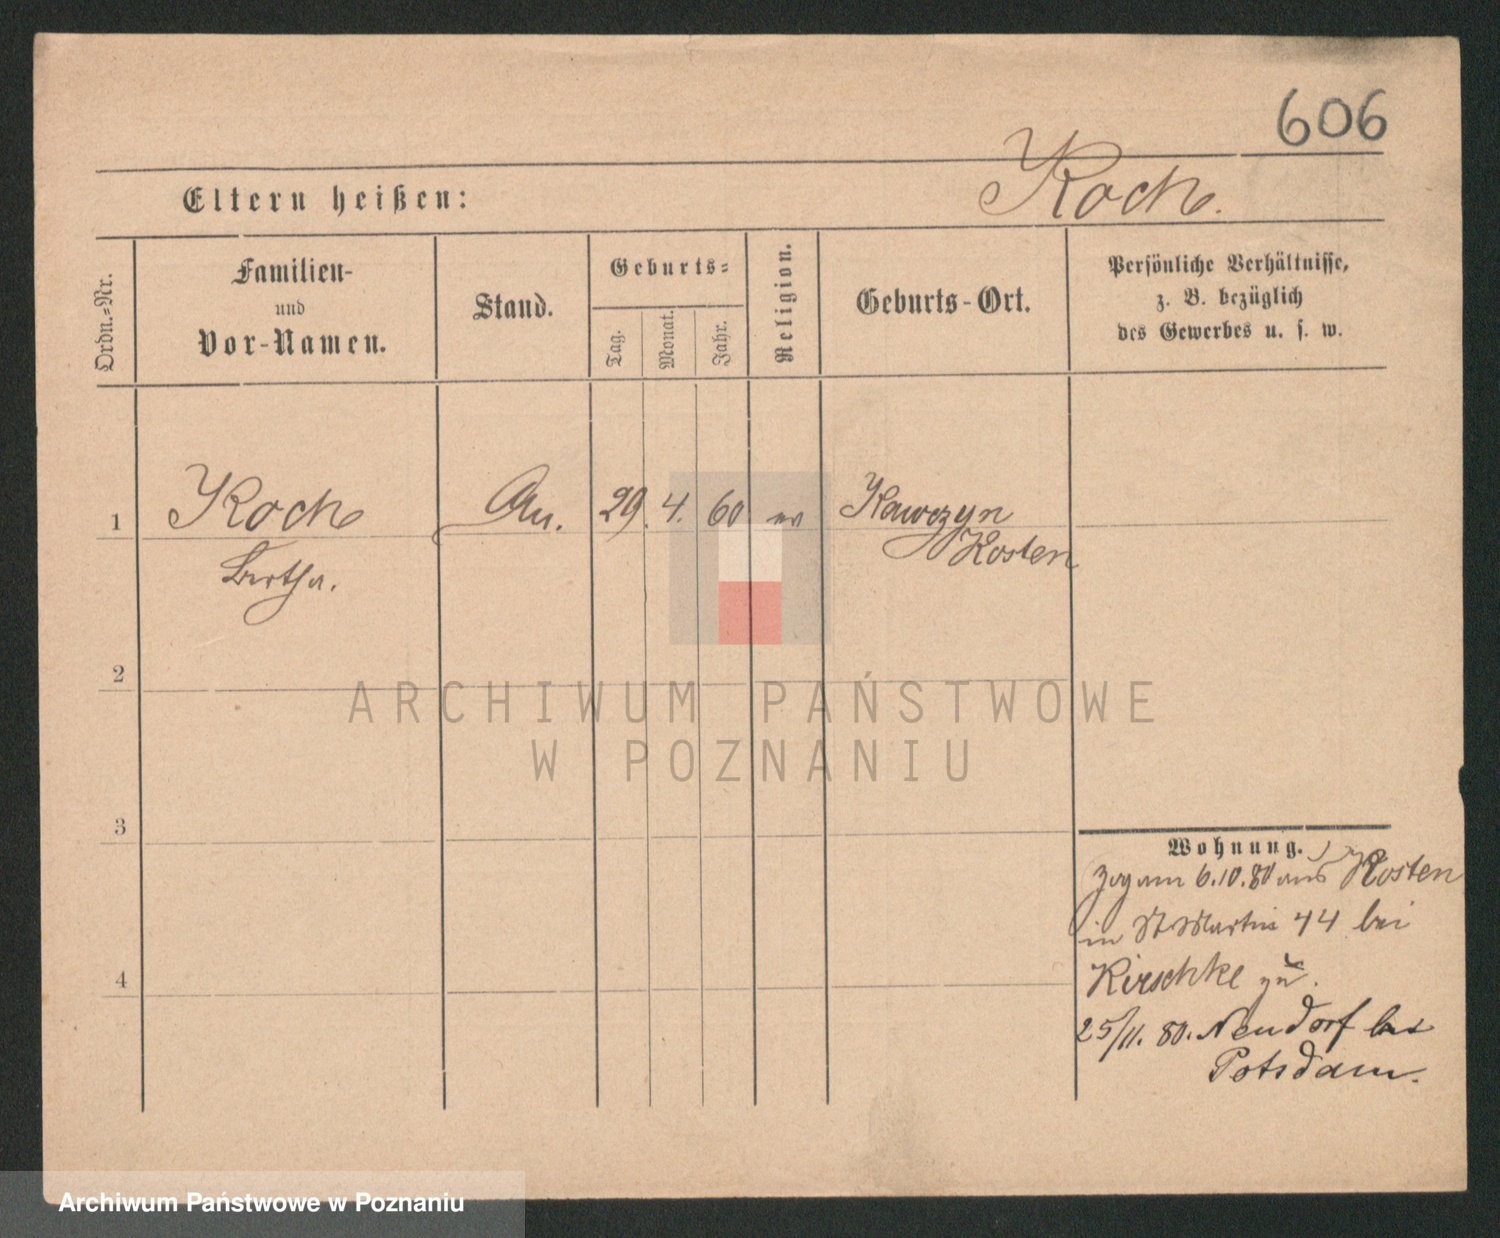 606
Eltern heißen:
Koch.
Ordn.-Nr.
Familien-
und
Vor-Namen.
Stand.
Geburts-
Tag.
Monat.
Jahr.
Religion.
Geburts-Ort.
Persönliche Verhältnisse,
z. B. bezüglich
des Gewerbes u. s. w.
1
Koch
Bertha.
29. 4. 60 ev
Kawczyn
Kosten
2
ARCHIWUM PAŃSTWOWE
W POZNANIU
3
Wohnung.
Zog am 6.10.80 aus Kosten
in St Martin 44 bei
Kirschke zu.
4
25/11. 80. Neudorf bei
Potsdam.
Archiwum Państwowe w Poznaniu